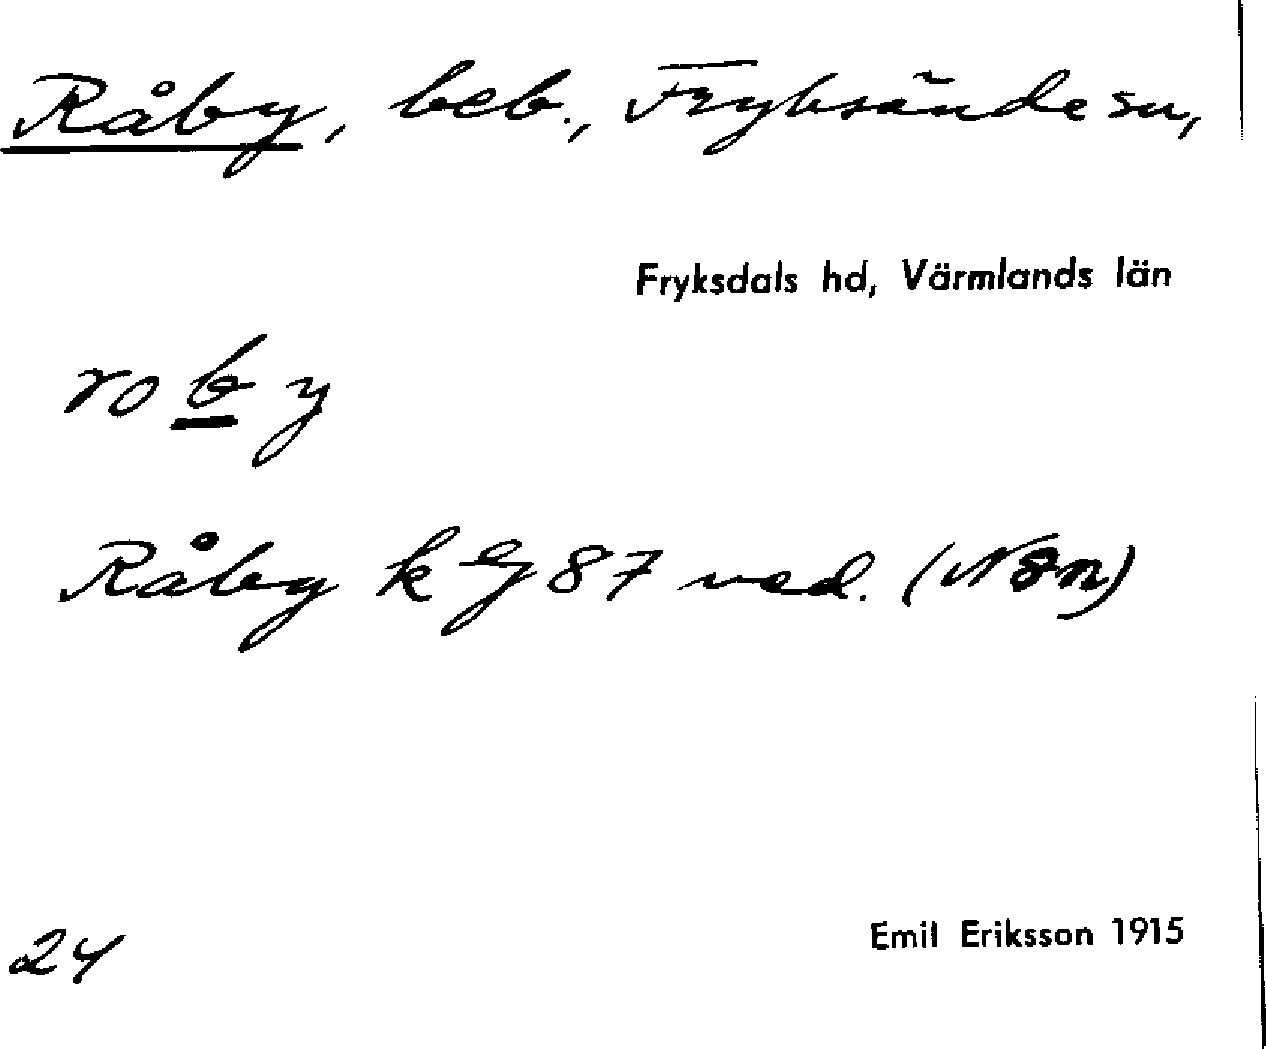 Råby, beb., Fryksände sn,
Fryksdals hd, Värmlands län
roby
Råby k eg 87 ved. (NSn)
24
Emil Eriksson 1915